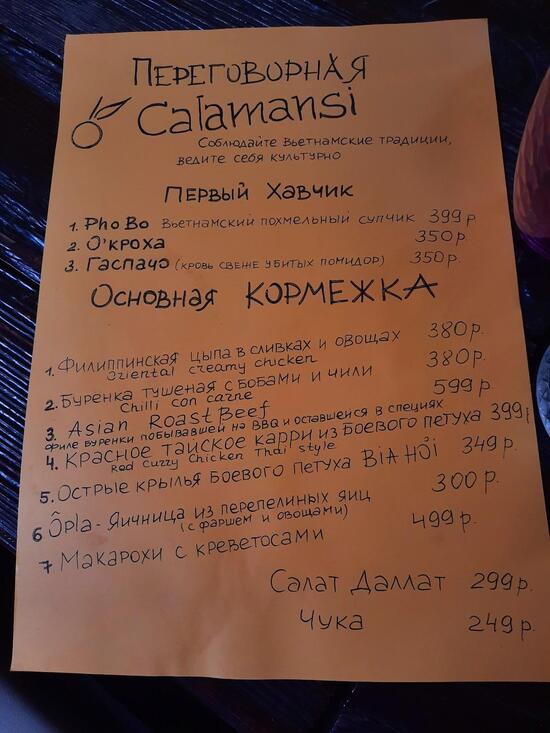 ПЕРЕГОВОРНАЯ
Calamansi
Соблюдайте Вьетнамские традиции,
ведите себя культурно
Первый Хавчик
1. Pho Bo Вьетнамский похмельный супчик 399 р
2. О'кроха 350 р.
3. Гаспачо (кровь свеже убитых помидор) 350 р.
Основная КОРМЕЖКА
1. Филиппинская цыпа в сливках и овощах 380 р.
Oriental creamy chicken
2. Буренка тушеная с бобами и чили 380 р.
Chilli con carne
3. Asian Roast Beef 599 р
филе буренки побывавшей на BBQ и оставшейся в специях
4. Красное тайское карри из Боевого петуха 399 р
Red Cuzzy Chicken Thai style
5. Острые крылья Боевого петуха BIA HỞI 349 р.
6 Ôpla - Яичница из перепелиных яиц 300 р.
(с фаршем и овощами)
7 Макарохи с креветосами 499 р.
Салат Даллат 299 р.
Чука 249 р.